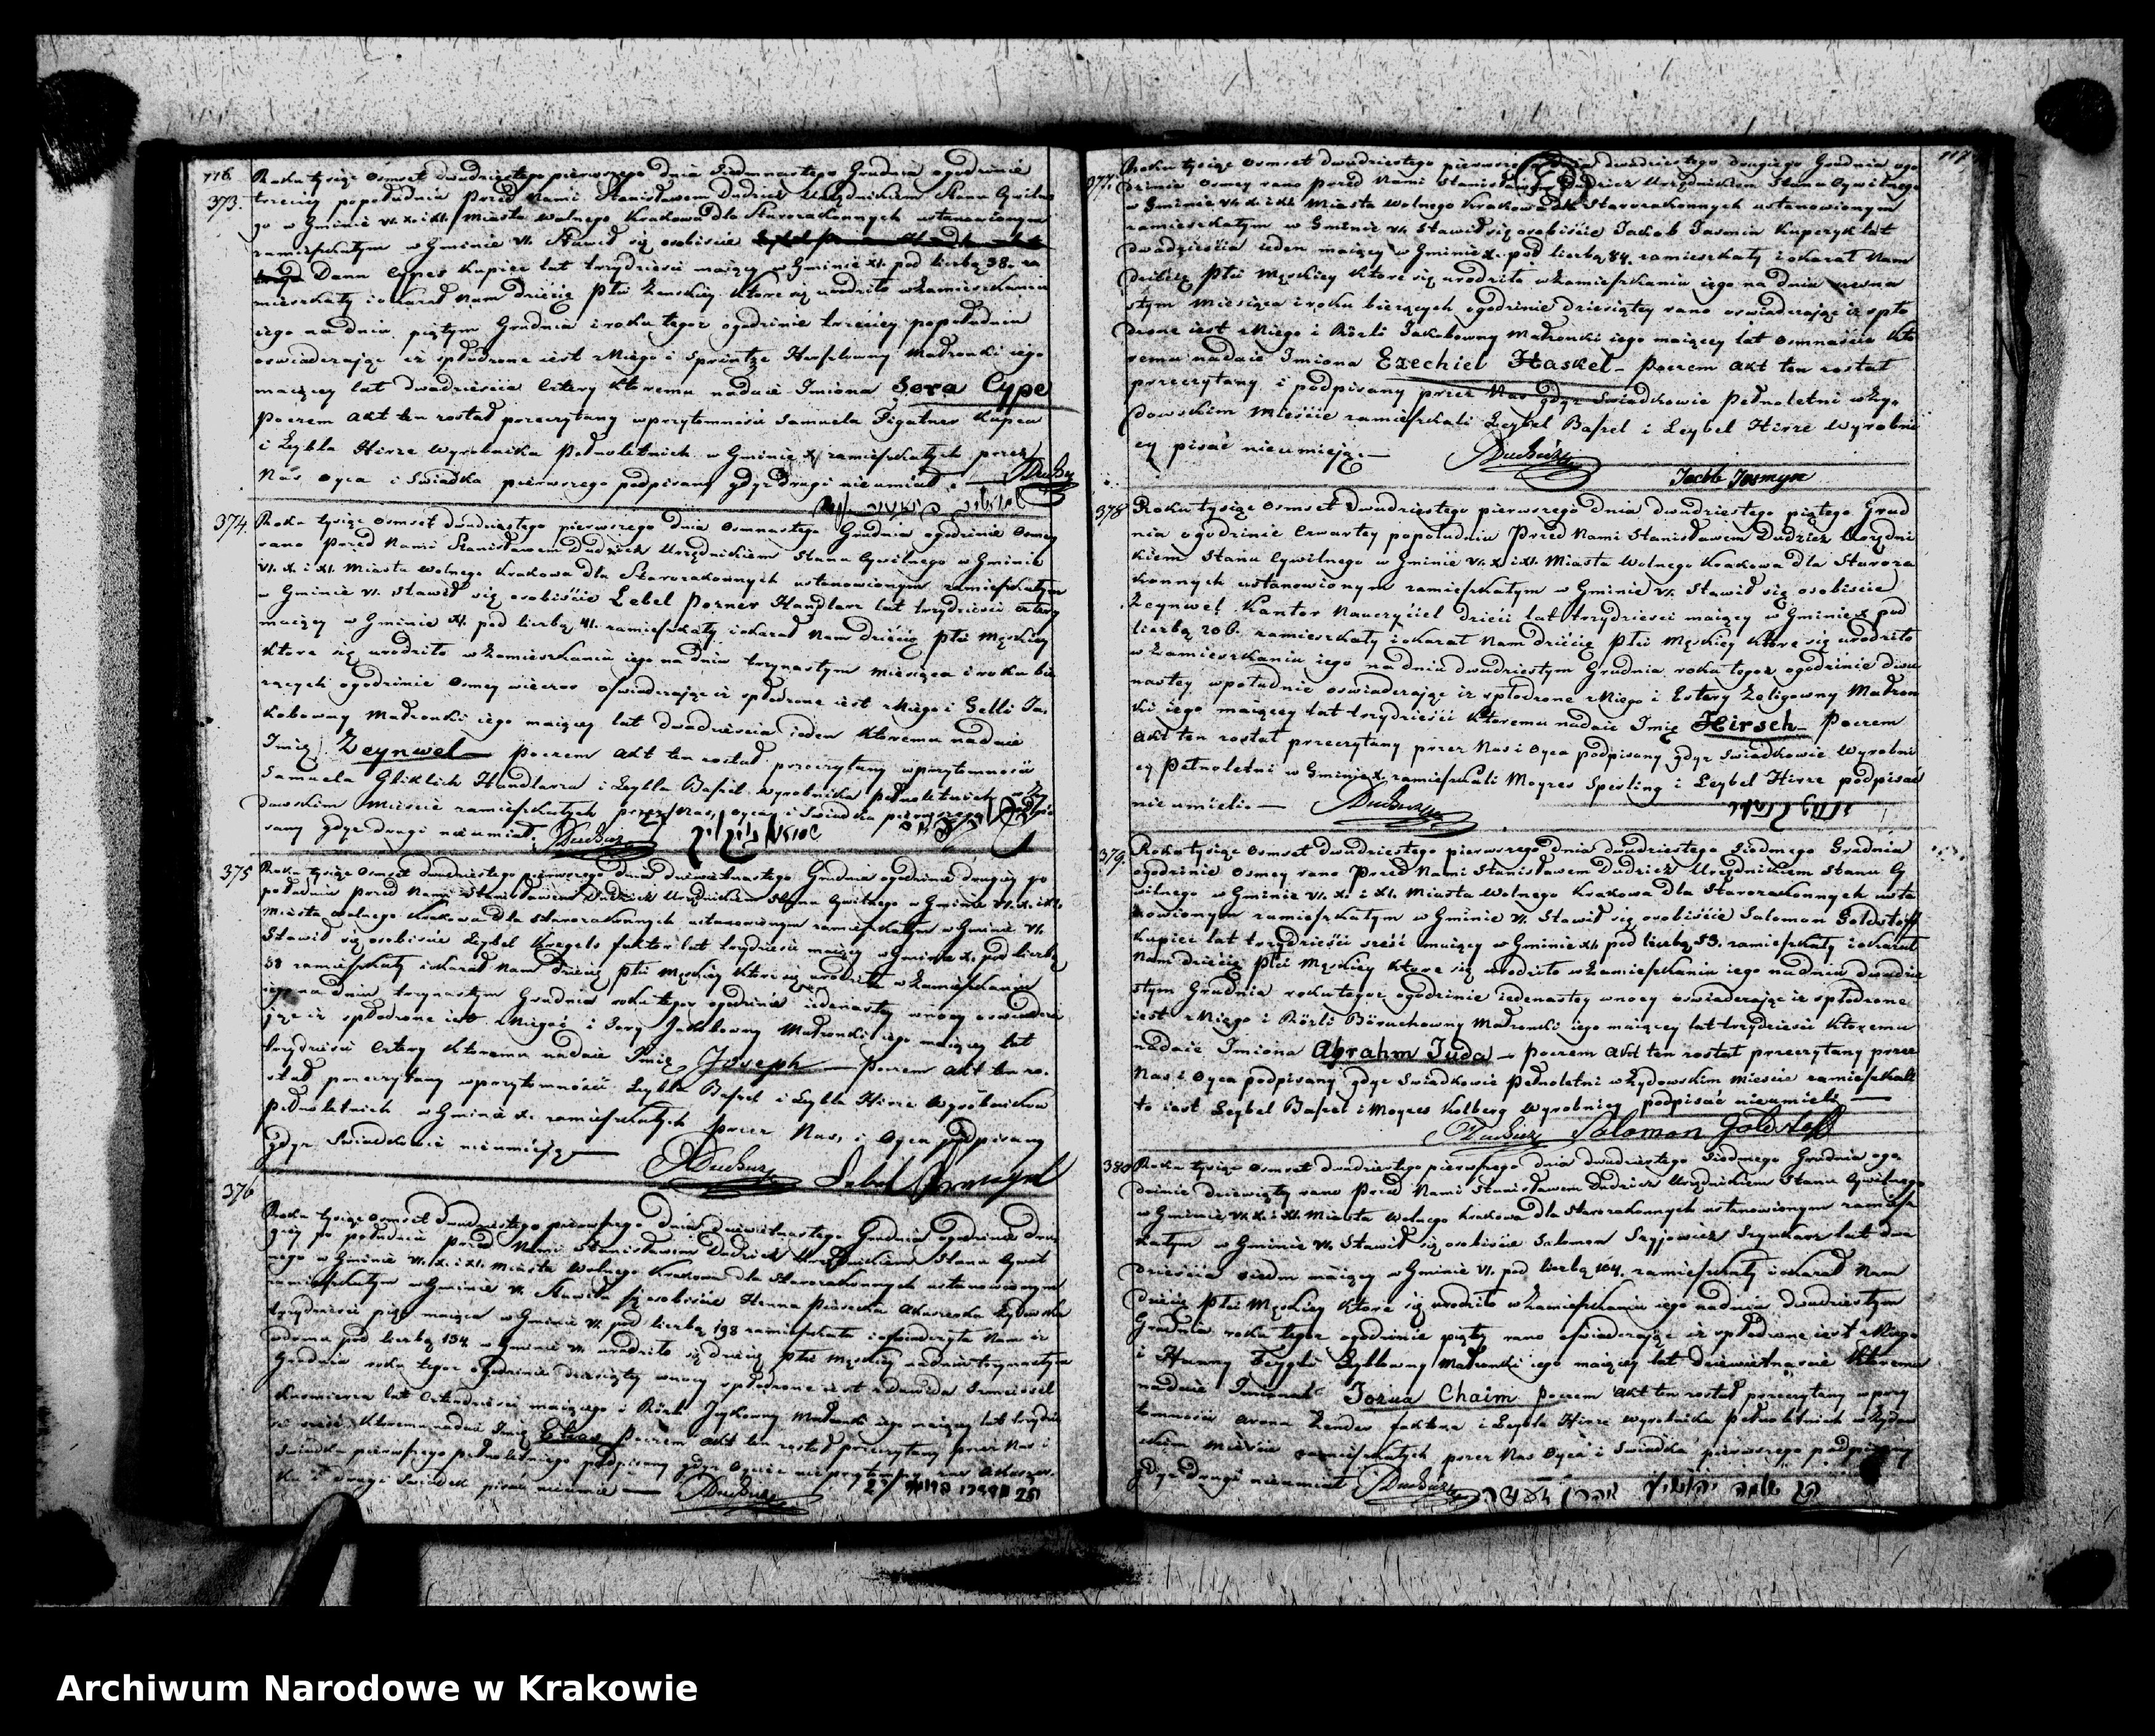 116.
373.
Roku tysiąc osmset dwudziestego pierwszego dnia siedmnastego Grudnia ogodzinie
trzeciey popołudniu Przed Nami Stanisławem Dudzicz Urzędnikiem Stanu Cywilne
go w Gminie VI. X i XI. Miasta Wolnego Krakowa dla Starozakonnych ustanowionym
zamieszkałym w Gminie VI. Stawił się osobiście
Cypes Kupiec lat trzydzieści maiący w Gminie XI. pod liczbą 38. za
mieszkały i okazał Nam dziecię płci żenskiey które się urodziło w zamieszkaniu
iego na dniu piątym Grudnia i roku tegoż ogodzinie trzeciey popołudniu
oswiadczaiąc iż spłodzone iest z Niego i Sprintze Herszlowny Małżonki iego
maiącey lat dwadzieścia cztery któremu nadaie Imiona Sora Cype
Poczem Akt ten został przeczytany w przytomności Samuela Kupca
i Leybla Hirze Wyrobnika Pełnoletnich w Gminie X zamieszkałych przez
Nas, Oyca i Swiadka pierwszego podpisany gdyż drugi nieumiał.
374.
Roku tysiąc osmset dwudziestego pierwszego dnia osmnastego Grudnia ogodzinie osmey
rano Przed Nami Stanisławem Dudzicz Urzędnikiem Stanu Cywilnego w Gminie
VI. X. i XI. Miasta Wolnego Krakowa dla Starozakonnych ustanowionym zamieszkałym
w Gminie VI. Stawił się osobiście Lebel Pozner Handlarz lat trzydzieści cztery
maiący w Gminie XI. pod liczbą 41. zamieszkały i okazał Nam dziecię płci męskiey
które się urodziło w zamieszkaniu iego na dniu trzynastym miesiąca i roku bie
rzących ogodzinie osmey wieczor oświadczaiąc iż spłodzone iest z Niego i Gelli Ja
kobowny Małżonki iego maiącey lat dwadzieścia ieden któremu nadaie
Imię Zeynwel Poczem Akt ten został przeczytany w przytomności
Samuela Gliklich Handlarza i Leybla Basiel Wyrobnika Pełnoletnich w Ży
dowskim Mieście zamieszkałych przez Nas, Oyca i Swiadka pierwszego podpi
sany gdyż drugi nieumiał.
375
Roku tysiąc osmset dwudziestego pierwszego dnia dziewietnastego Grudnia ogodzinie drugiey po
południu przed Nami Stanisławem Dudzicz Urzędnikiem Stanu Cywilnego w Gminie VI. X. i XI.
Miasta Wolnego Krakowa dla Starozakonnych ustanowionym zamieszkałym w Gminie VI.
Stawił się osobiście Leybel faktor lat trzydzieści maiący w Gminie X. pod liczbą
38 zamieszkały i okazał Nam dziecię płci męskiey które się urodziło w zamieszkaniu
iego na dniu trzynastym Grudnia roku tegoż ogodzinie iedenastey w nocy oswiadcza
iąc iż spłodzone iest z Niego i Sory Jakobowny Małżonki iego maiącey lat
trzydzieści cztery któremu nadaie Imię Joseph Poczem Akt ten zo
stał przeczytany w przytomności Leybla Basiel i Leybla Hirze Wyrobników
Pełnoletnich w Gminie X. zamieszkałych przez Nas, i Oyca podpisany
gdyż Swiadkowie nieumieią
376
Roku tysiąc osmset dwudziestego pierwszego dnia dziewietnastego Grudnia ogodzinie dru
giey po południu przed Nami Stanisławem Dudzicz Urzędnikiem Stanu Cywil
nego w Gminie VI. X. i XI. Miasta Wolnego Krakowa dla Starozakonnych ustanowionym
zamieszkałym w Gminie VI. Stawiła się osobiście Henna Akuszerka Żydowska
trzydzieści pięć maiąca w Gminie VI. pod liczbą 198 zamieszkała i oświadczyła Nam iż
w domu pod liczbą 154 w Gminie VI. urodziło się dziecię płci męskiey na dniu trzynastym
Grudnia roku tegoż ogodzinie dziesiątey w nocy spłodzone iest z Dawida
Kusmierza lat czterdzieści maiącego i Małżonki iego maiącey lat trzydzie
ści sześć któremu nadaie Imię Poczem Akt ten został przeczytany przez Nas i
Swiadka pierwszego pełnoletniego podpisany gdyż Oyciec nieprzytomny zas Akuszer
ka i drugi Swiadek pisać nieumie
117
377.
Roku tysiąc osmset dwudziestego pierwszego dnia dwudziestego drugiego Grudnia ogo
dzinie osmey rano przed Nami Stanisławem Dudzicz Urzędnikiem Stanu Cywilnego
w Gminie VI. X. i XI. Miasta Wolnego Krakowa dla Starozakonnych ustanowionym
zamieszkałym w Gminie VI. Stawił się osobiście Jakob Jasmin Kuperzyk lat
dwadzieścia ieden maiący w Gminie X. pod liczbą 84. zamieszkały i okazał Nam
dziecię płci męskiey które się urodziło w zamieszkaniu iego na dniu szesna
stym miesiąca i roku bieżących ogodzinie dziesiątey rano oswiadczaiąc iż spło
dzone iest z Niego i Rözli Jakobowny Małżonki iego maiącey lat osmnaście któ
remu nadaie Imiona Ezechiel Haskel Poczem Akt ten został
przeczytany i podpisany przez Nas gdyż Swiadkowie Pełnoletni w Ży
dowskim Mieście zamieszkali Leybel Basiel i Leybel Hirze Wyrobni
cy pisać nieumieią.
Jacob Jasmyn
378
Roku tysiąc osmset dwudziestego pierwszego dnia dwudziestego piątego Grud
nia ogodzinie czwartey popołudniu Przed Nami Stanisławem Dudzicz Urzędni
kiem Stanu Cywilnego w Gminie VI. X i XI. Miasta Wolnego Krakowa dla Staroza
konnych ustanowionym zamieszkałym w Gminie VI. Stawił się osobiście
Zeynwel Kantor Nauczyciel dzieci lat trzydzieści maiący w Gminie X pod
liczbą 206. zamieszkały i okazał Nam dziecię płci męskiey które się urodziło
w zamieszkaniu iego na dniu dwudziestym Grudnia roku tegoż ogodzinie dwu
nastey w południe oswiadczaiąc iż spłodzone z Niego i Estery Zeligowny Małżon
ki iego maiącey lat trzydzieści któremu nadaie Imię Hirsch Poczem
Akt ten został przeczytany przez Nas i Oyca podpisany gdyż Swiadkowie Wyrobni
cy Pełnoletni w Gminie X. zamieszkali Moyzes Sperling i Leybel Hirze podpisać
nieumieli.
379.
Roku tysiąc osmset dwudziestego pierwszego dnia dwudziestego siodmego Grudnia
ogodzinie osmey rano Przed Nami Stanisławem Dudzicz Urzędnikiem Stanu Cy
wilnego w Gminie VI. X. i XI. Miasta Wolnego Krakowa dla Starozakonnych usta
nowionym zamieszkałym w Gminie VI. Stawił się osobiście Salomon Goldstoff
Kupiec lat trzydzieści sześć maiący w Gminie XI. pod liczbą 53. zamieszkały i okazał
Nam dziecię płci męskiey które się urodziło w zamieszkaniu iego na dniu dwudzie
stym Grudnia roku tegoż ogodzinie iedenastey w nocy oswiadczaiąc iż spłodzone
iest z Niego i Rözli Böruchowny Małżonki iego maiącey lat trzydzieści któremu
nadaie Imiona Abrahm Juda Poczem Akt ten został przeczytany przez
Nas i Oyca podpisany gdyż Swiadkowie Pełnoletni w Żydowskim Mieście zamieszkali
to iest Leybel Basiel i Moyzes Kolberg Wyrobnicy podpisać nieumieli
Salomon Goldstoff
380
Roku tysiąc osmset dwudziestego pierwszego dnia dwudziestego siodmego Grudnia ogo
dzinie dziewiątey rano Przed Nami Stanisławem Dudzicz Urzędnikiem Stanu Cywilnego
w Gminie VI. X. i XI. Miasta Wolnego Krakowa dla Starozakonnych ustanowionym zamiesz
kałym w Gminie VI. Stawił się osobiście Salomon Szyjowicz Szynkarz lat dwa
dzieścia siedm maiący w Gminie VI. pod liczbą 104. zamieszkały i okazał Nam
dziecię płci męskiey które się urodziło w zamieszkaniu iego na dniu dwudziestym
Grudnia roku tegoż ogodzinie piątey rano oświadczaiąc iż spłodzone iest z Niego
i Hanny Feygli Leyblowny Małżonki iego maiącey lat dziewietnaście któremu
nadaie Imiona Jozua Chaim Poczem Akt ten został przeczytany w przy
tomności Arona Zender faktora i Leybla Hirze Wyrobnika Pełnoletnich w Żydow
skim Mieście zamieszkałych przez Nas Oyca i Swiadka pierwszego podpisany
gdyż drugi nieumiał
Archiwum Narodowe w Krakowie